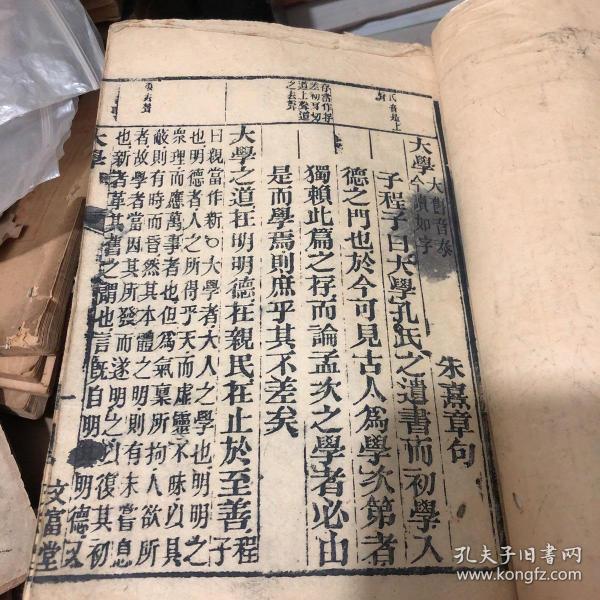 大學
大舊音泰
今讀如字
朱熹章句
子程子曰大學孔氏之遺書而初學入
德之門也於今可見古人爲學次第者
獨賴此篇之存而論孟次之學者必由
是而學焉則庶乎其不差矣
大學之道在明明德在親民在止於至善
程子
曰親當作新○大學者大人之學也明明之
也明德者人之所得乎天而虛靈不昧以具
衆理而應萬事者也但爲氣稟所拘人欲所
蔽則有時而昏然其本體之明則有未嘗息
者故學者當因其所發而遂明之以復其初
也新者革其舊之謂也言旣自明其明德又
大學
一
文富堂
孔夫子旧书网
www.kongfz.com